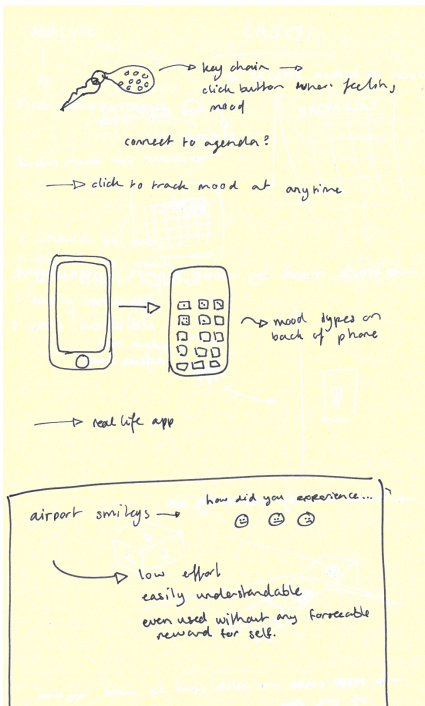 key chain →
click button when feeling
mood
connect to agenda?
→ click to track mood at anytime
→ mood types on
back of phone
→ real life app
airport smileys →
how did you experience...
low effort
easily understandable
even used without any
reward for self.